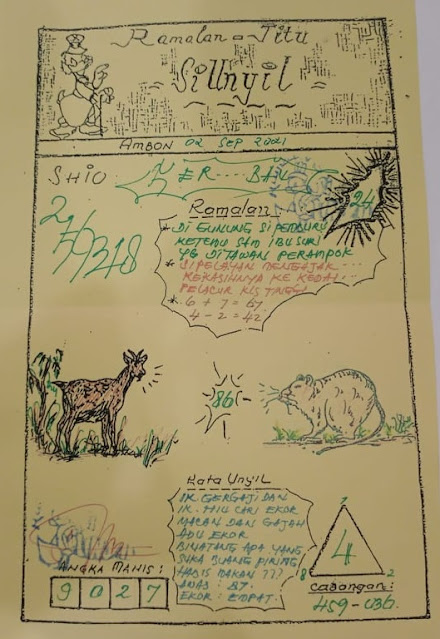 Ramalan = Jitu
SiUnyil
AMBON 02 SEP 2021
SHIO
24
Ramalan
* DI GUNUNG SI PEMBURU
KETEMU SAM IBU SURI
YG DITAWAN PERAMPOK
* SIPELAYAN MENGAJAK ...
KEKASIHNYA KE KEDAI ...
PELACUR KLS TINGGI
* 6 + 7 = 67
4 - 2 = 42
86
Kata Unyil
IK GERGAJI DAN
IK. HIU CARI EKOR
MACAN DAN GAJAH
ADU EKOR
BINATANG APA YANG
SUKA BUANG PIRING
HABIS MAKAN ???
ANAS : 87.
EKOR : EMPAT.
ANGKA MANIS :
9 0 2 7
4
8 2
CABANGAN :
459-036.